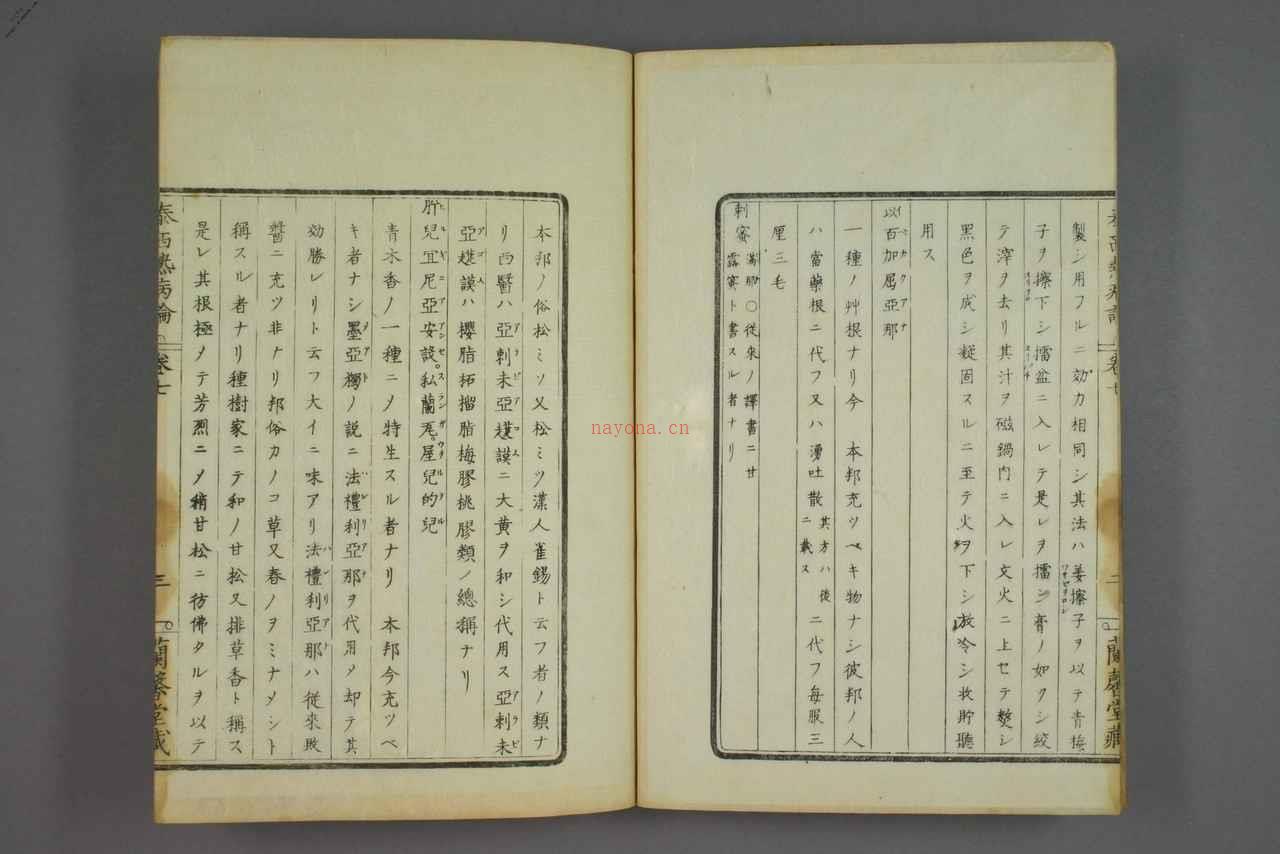 製シ用フルニ効力相同シ其法ハ姜擦子ヲ以テ青梅
子ヲ擦下シ擂盆ニ入レテ是レヲ擂シ膏ノ如クシ絞
テ滓ヲ去リ其汁ヲ磁鍋內ニ入レ文火ニ上セテ熬シ
黑色ヲ成シ凝固スルニ至テ火ヲ下シ放冷シ收貯聽
用ス
以百加屈亞那
一種ノ艸根ナリ今 本邦充ツベキ物ナシ彼邦ノ人
ハ當藥根ニ代フ又ハ湧吐散其方ハ後ニ載スニ代フ每服三
厘三毛
刺蜜 滿那○從來ノ譯書ニ甘露蜜ト書スル者ナリ
卷七
二
蘭馨堂藏
本邦ノ俗松ミソ又松ミツ漢人雀錫ト云フ者ノ類ナ
リ西醫ハ亞剌未亞謨ニ大黃ヲ和シ代用ス亞剌未
亞謨ハ櫻脂柘榴脂梅膠桃膠類ノ總稱ナリ
肝兒宜尼亞安設私蘭瓦屋兒的兒
青木香ノ一種ニメ特生スル者ナリ 本邦今充ツベ
キ者ナシ墨亞獨ノ說ニ法禮利亞那ヲ代用メ却テ其
効勝レリト云フ大イニ味アリ法禮利亞那ハ從來敗
醬ニ充ツ非ナリ邦俗カノコ草又春ノヲミナメシト
稱スル者ナリ種樹家ニテ和ノ甘松又排草香ト稱ス
是レ其根極メテ芳烈ニメ稍甘松ニ彷彿タルヲ以テ
泰西熱病論
卷七
三
蘭馨堂藏
nayona.cn